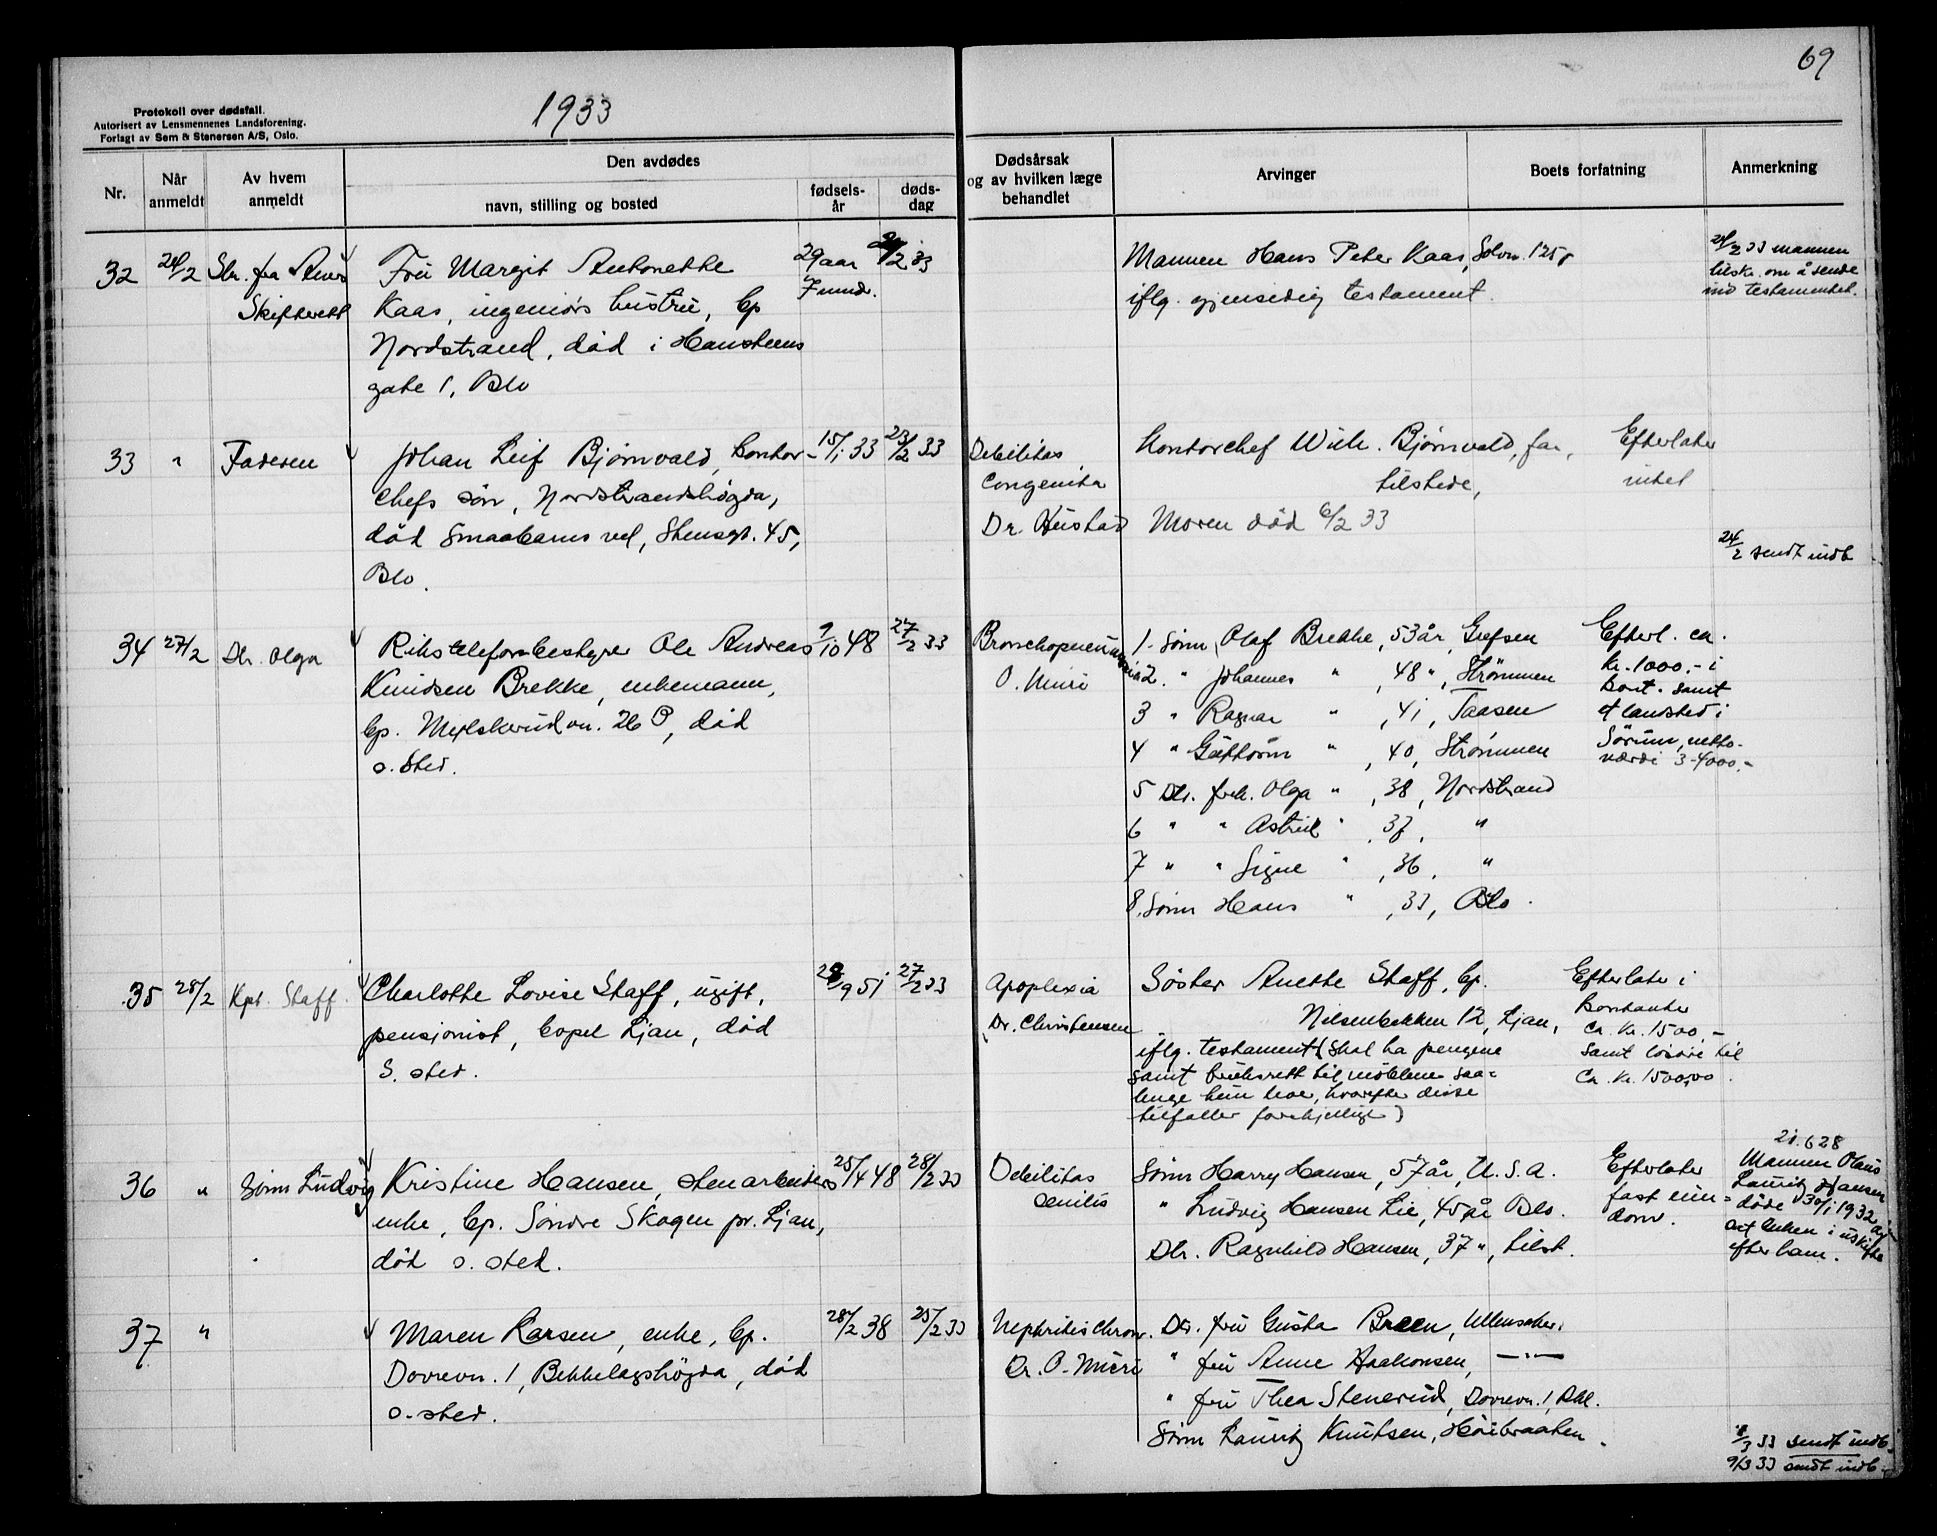 69
Protokoll over dødsfall.
Autorisert av Lensmennenes Landsforening.
Forlagt av Sem & Stenersen A/S, Oslo.
1933
Nr.
Når anmeldt
Av hvem anmeldt
Den avdødes
navn, stilling og bosted
fødsels-år
døds-dag
Dødsårsak og av hvilken læge behandlet
Arvinger
Boets forfatning
Anmerkning
32 24/2 Skr. fra Akers Skifterett
Fru Margit Antonette
Kaas, ingeniørs hustru, bp
Nordstrand, død i Hansteens
gate 1, Oslo
29 aar
7 mndr.
/2 33
Mannen Hans Peter Kaas, Solvn. 125,
iflg. gjensidig testament.
24/2 33 mannen
tilskr. om å sende
inn testamentet.
33 " Faderen
Johan Leif Bjørnvald, kontor-
chefs søn, Nordstrandshøgda,
død Smaabarns vel, Stensgt. 45,
Oslo.
15/1 33
23/2 33
Debilitas
Congenita
Dr. Hustad
Kontorchef Wilh. Bjørnvald, far,
tilstede,
Moren død 6/2 33
Efterlater
intet
24/2 sendt indb
34 27/2 Dtr. Olga
Rikstelefonbestyrer Ole Andreas
Knudsen Brekke, enkemann,
bp. Mellskerudvn. 26 P, død
s. sted.
9/10 48
27/2 33
Bronchopneumonia
O. Muri
1. Sønn Olaf Brekke, 53 år, Grefsen
2. " Johannes " , 48 ", Strømmen
3 " Ragnar " , 41, Taasen
4 " Guthorm " , 40, Strømmen
5 Dtr. frk. Olga " , 38, Nordstrand
6 " " Astrid " , 37, "
7 " " Signe " , 36, "
8. Sønn Hans " , 33, Oslo.
Efterl. ca.
kr. 1000.- i
kont. samt
et landsted i
Sørum, netto-
værdi 3-4000.-
35 28/2 Kpt. Staff.
Charlotte Lovise Staff, ugift,
pensjonist, bopel Ljan, død
S. sted.
28/9 51
27/2 33
Apoplexia
Dr. Christensen
Søster Anette Staff, bp.
Nilsenbakken 12, Ljan,
iflg. testament (skal ha pengene
samt bruksrett til møblene saa-
lenge hun lever, hvorefter disse
tilfaller forskjellige)
Efterlater i
kontanter
ca. kr. 1500,-
samt løsøre til
ca. kr. 1500,00.
36 " Sønn Ludvig
Kristine Hansen, stenarbeiders
enke, bp. Søndre Skogen pr. Ljan,
død s. sted.
25/4 48
28/2 33
Debilitas
senilis
Sønn Harry Hansen, 57 år, U.S.A.
" Ludvig Hansen Lie, 45 år Oslo.
Dtr. Ragnhild Hansen, 37 ", tilst.
Efterlater
fast eien-
dom.
21.628
Mannen Olaus
Lauritz Hansen
døde 30/1 1932
enken i uskifte
efter ham.
37 "
Maren Larsen, enke, bp.
Dovrevn. 1, Bekkelagshøgda, død
s. sted.
28/2 38
25/2 33
Nephritis chron.
Dr. O. Muri
Dtr. fru Gusta Breen, Ullensaker.
" fru Anne Haakonsen, —"—
" fru Thea Stenerud, Dovrevn. 1, Bkl.
Sønn Lauritz Knutsen, Høibraaten.
8/3 33 sendt indb.
9/3 33 sendt indb.